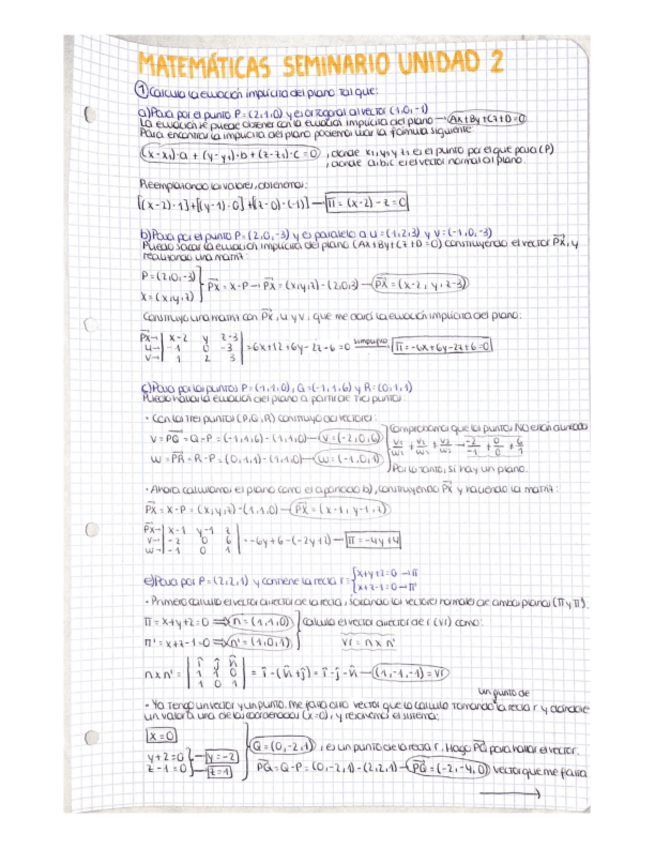 MATEMÁTICAS SEMINARIO UNIDAD 2
① Calcula la ecuación implícita del plano tal que:
a) Pasa por el punto P=(2,1,0) y es ortogonal al vector (1,0,-1)
La ecuación se puede obtener con la ecuación implícita del plano → Ax+By+Cz+D=0
Para encontrar la implícita del plano podemos usar la fórmula siguiente:
(x-x₁)·a + (y-y₁)·b + (z-z₁)·c = 0, donde x₁, y₁ y z₁ es el punto por el que pasa (P)
, donde a, b, c es el vector normal al plano.
Reemplazando los valores, obtenemos:
[(x-2)·1]+[(y-1)·0]+[(z-0)·(-1)] → π = (x-2)-z=0
b) Pasa por el punto P=(2,0,-3) y es paralelo a u=(1,2,3) y v=(-1,0,-3)
Puedo sacar la ecuación implícita del plano (Ax+By+Cz+D=0) construyendo el vector PX, y
realizando una matriz:
P=(2,0,-3)
X=(x,y,z)
PX = X-P → PX = (x,y,z)-(2,0,3) → PX=(x-2, y, z-3)
Construyo una matriz con PX, u y v, que me dará la ecuación implícita del plano:
PX→ | x-2 y z-3 |
u→ | -1 0 -3 | = 6x+12+6y-2z-6=0 simplifico π=-6x+6y-2z+6=0
v→ | 1 2 3 |
c) Pasa por los puntos P=(1,1,0), Q=(-1,1,6) y R=(0,1,1)
Puedo hallar la ecuación del plano a partir de tres puntos:
· Con los tres puntos (P,Q,R) construyo dos vectores:
v=PQ=Q-P=(-1,1,6)-(1,1,0) → v=(-2,0,6)
w=PR=R-P=(0,1,1)-(1,1,0) → w=(-1,0,1)
Comprobamos que los puntos NO están alineados
Por lo tanto, sí hay un plano.
· Ahora calculamos el plano como el apartado b), construyendo PX y haciendo la matriz:
PX=X-P=(x,y,z)-(1,1,0) → PX=(x-1, y-1, z)
PX→ | x-1 y-1 z |
v→ | -2 0 6 | = -6y+6-(-2y+2) → π=-4y+4
w→ | -1 0 1 |
e) Pasa por P=(2,2,1) y contiene la recta r= { x+y+2=0 → π
x+z-1=0 → π'
· Primero calculo el vector director de la recta, sacando los vectores normales de ambos planos (π y π').
π=x+y+2=0 ⇒ n=(1,1,0)
π'=x+z-1=0 ⇒ n'=(1,0,1)
Calculo el vector director de r (vr) como:
vr = n x n'
n x n' = | i j k |
| 1 1 0 | = i-(k+j)=i-j-k → (1,-1,-1)=vr
| 1 0 1 |
un punto de
· Ya tengo un vector y un punto. Me falta otro vector que lo calculo tomando la recta r y dándole
un valor a una de las coordenadas (x=0), y resolvemos el sistema:
x=0
y+2=0 → y=-2
z-1=0 → z=1
Q=(0,-2,1), es un punto de la recta r. Hago PQ para hallar el vector.
PQ=Q-P=(0,-2,1)-(2,2,1) → PQ=(-2,-4,0) vector que me falta